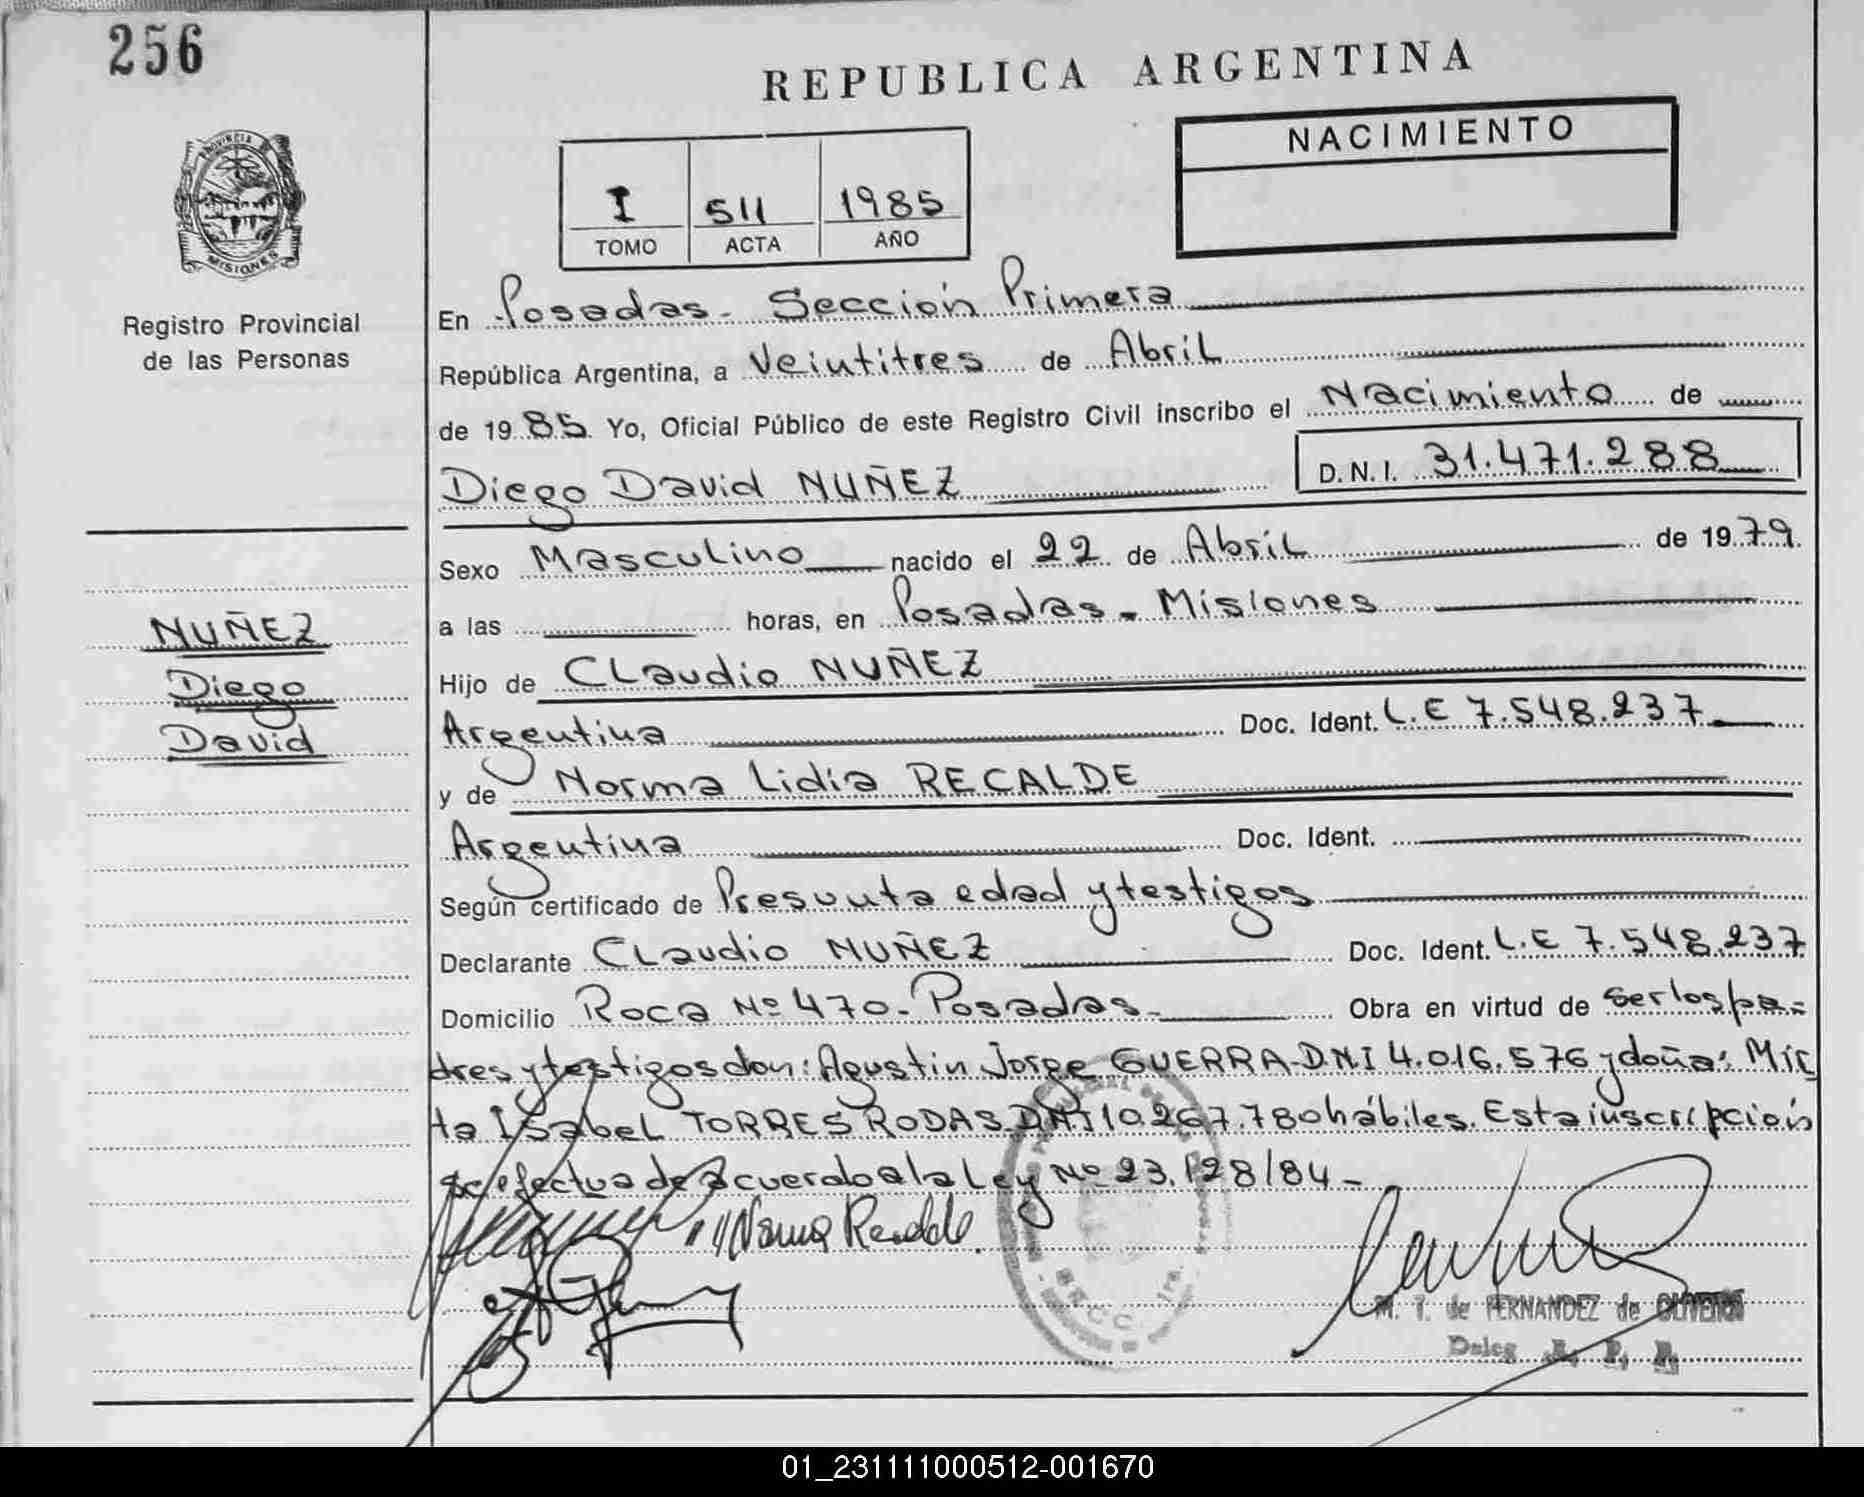 256
REPUBLICA ARGENTINA
PROVINCIA
MISIONES
Registro Provincial
de las Personas
I 511 1985
TOMO ACTA AÑO
NACIMIENTO
En Posadas - Sección Primera
República Argentina, a Veintitres de Abril
de 1985 Yo, Oficial Público de este Registro Civil inscribo el Nacimiento de
Diego David NUÑEZ D.N.I. 31.471.288
Sexo Masculino nacido el 22 de Abril de 1979.
NUÑEZ
Diego
David
a las horas, en Posadas - Misiones
Hijo de Claudio NUÑEZ
Argentina Doc. Ident. L.E 7.548.237
y de Norma Lidia RECALDE
Argentina Doc. Ident.
Según certificado de Presunta edad y testigos
Declarante Claudio NUÑEZ Doc. Ident. L.E 7.548.237
Domicilio Roca Nº 470 - Posadas - Obra en virtud de ser los pa-
dres y testigos don: Agustin Jorge GUERRA-D.N.I 4.016.576 y doña: Mir
ta Isabel TORRES RODAS. DNI 10.267.780 hábiles. Esta inscripción
se efectua de acuerdo a la Ley Nº 23.128/84 -
Norma Recalde
M. T. de FERNANDEZ de OLIVEIRA
Deleg. R. P. P.
01_231111000512-001670